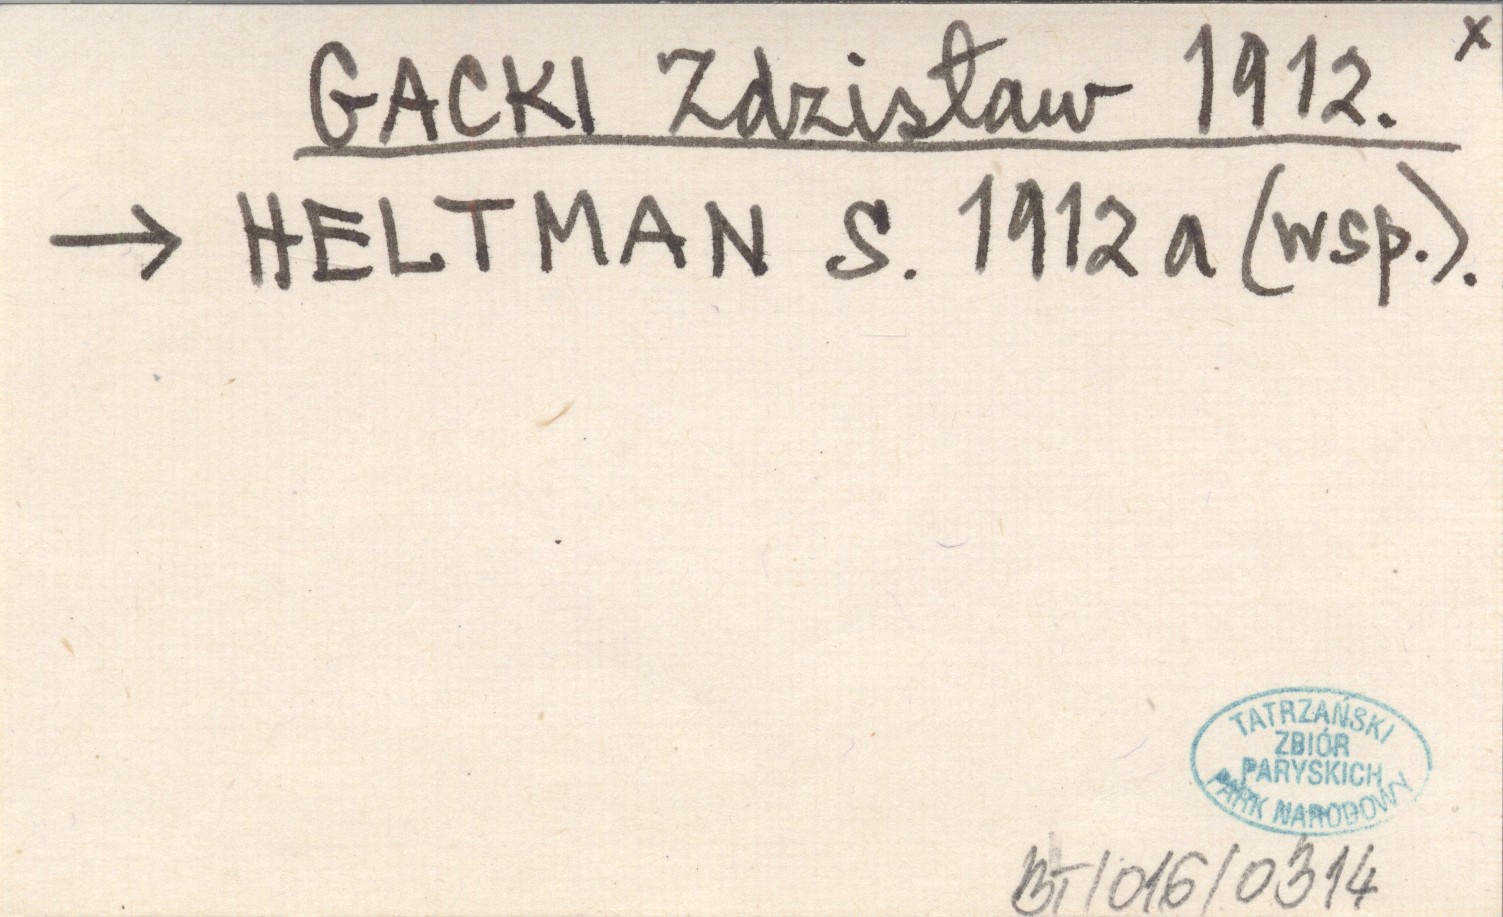 GACKI Zdzisław 1912. x
→ HELTMAN S. 1912 a (wsp.).
TATRZAŃSKI
ZBIÓR
PARYSKICH
PARK NARODOWY
BT/016/0314